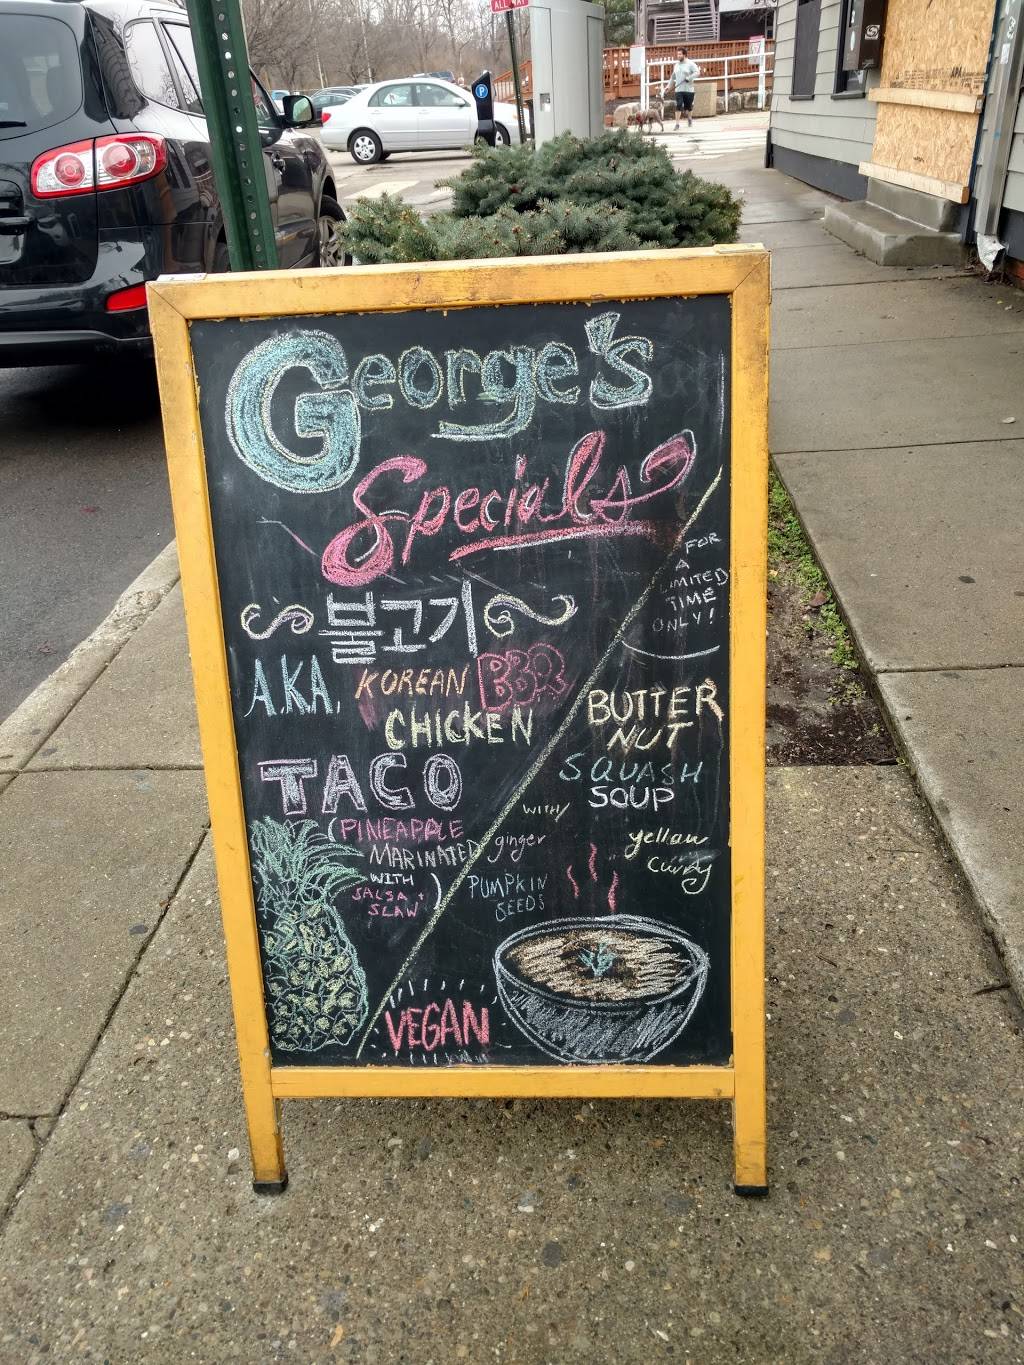 ALL WAY
P
George's
Specials
불고기
A.K.A. KOREAN BBQ
CHICKEN
TACO
(PINEAPPLE
MARINATED
WITH
SALSA +
SLAW)
FOR
A
LIMITED
TIME
ONLY!
BUTTER
NUT
SQUASH
SOUP
WITH/
ginger
yellow
curry
PUMPKIN
SEEDS
VEGAN